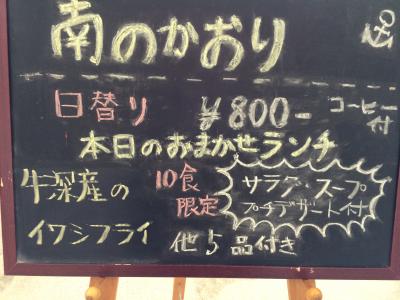 南のかおり
日替り ¥800- コーヒー付
本日のおまかせランチ
牛深産の
イワシフライ
10食
限定
サラダ・スープ
プチデザート付
他5品付き